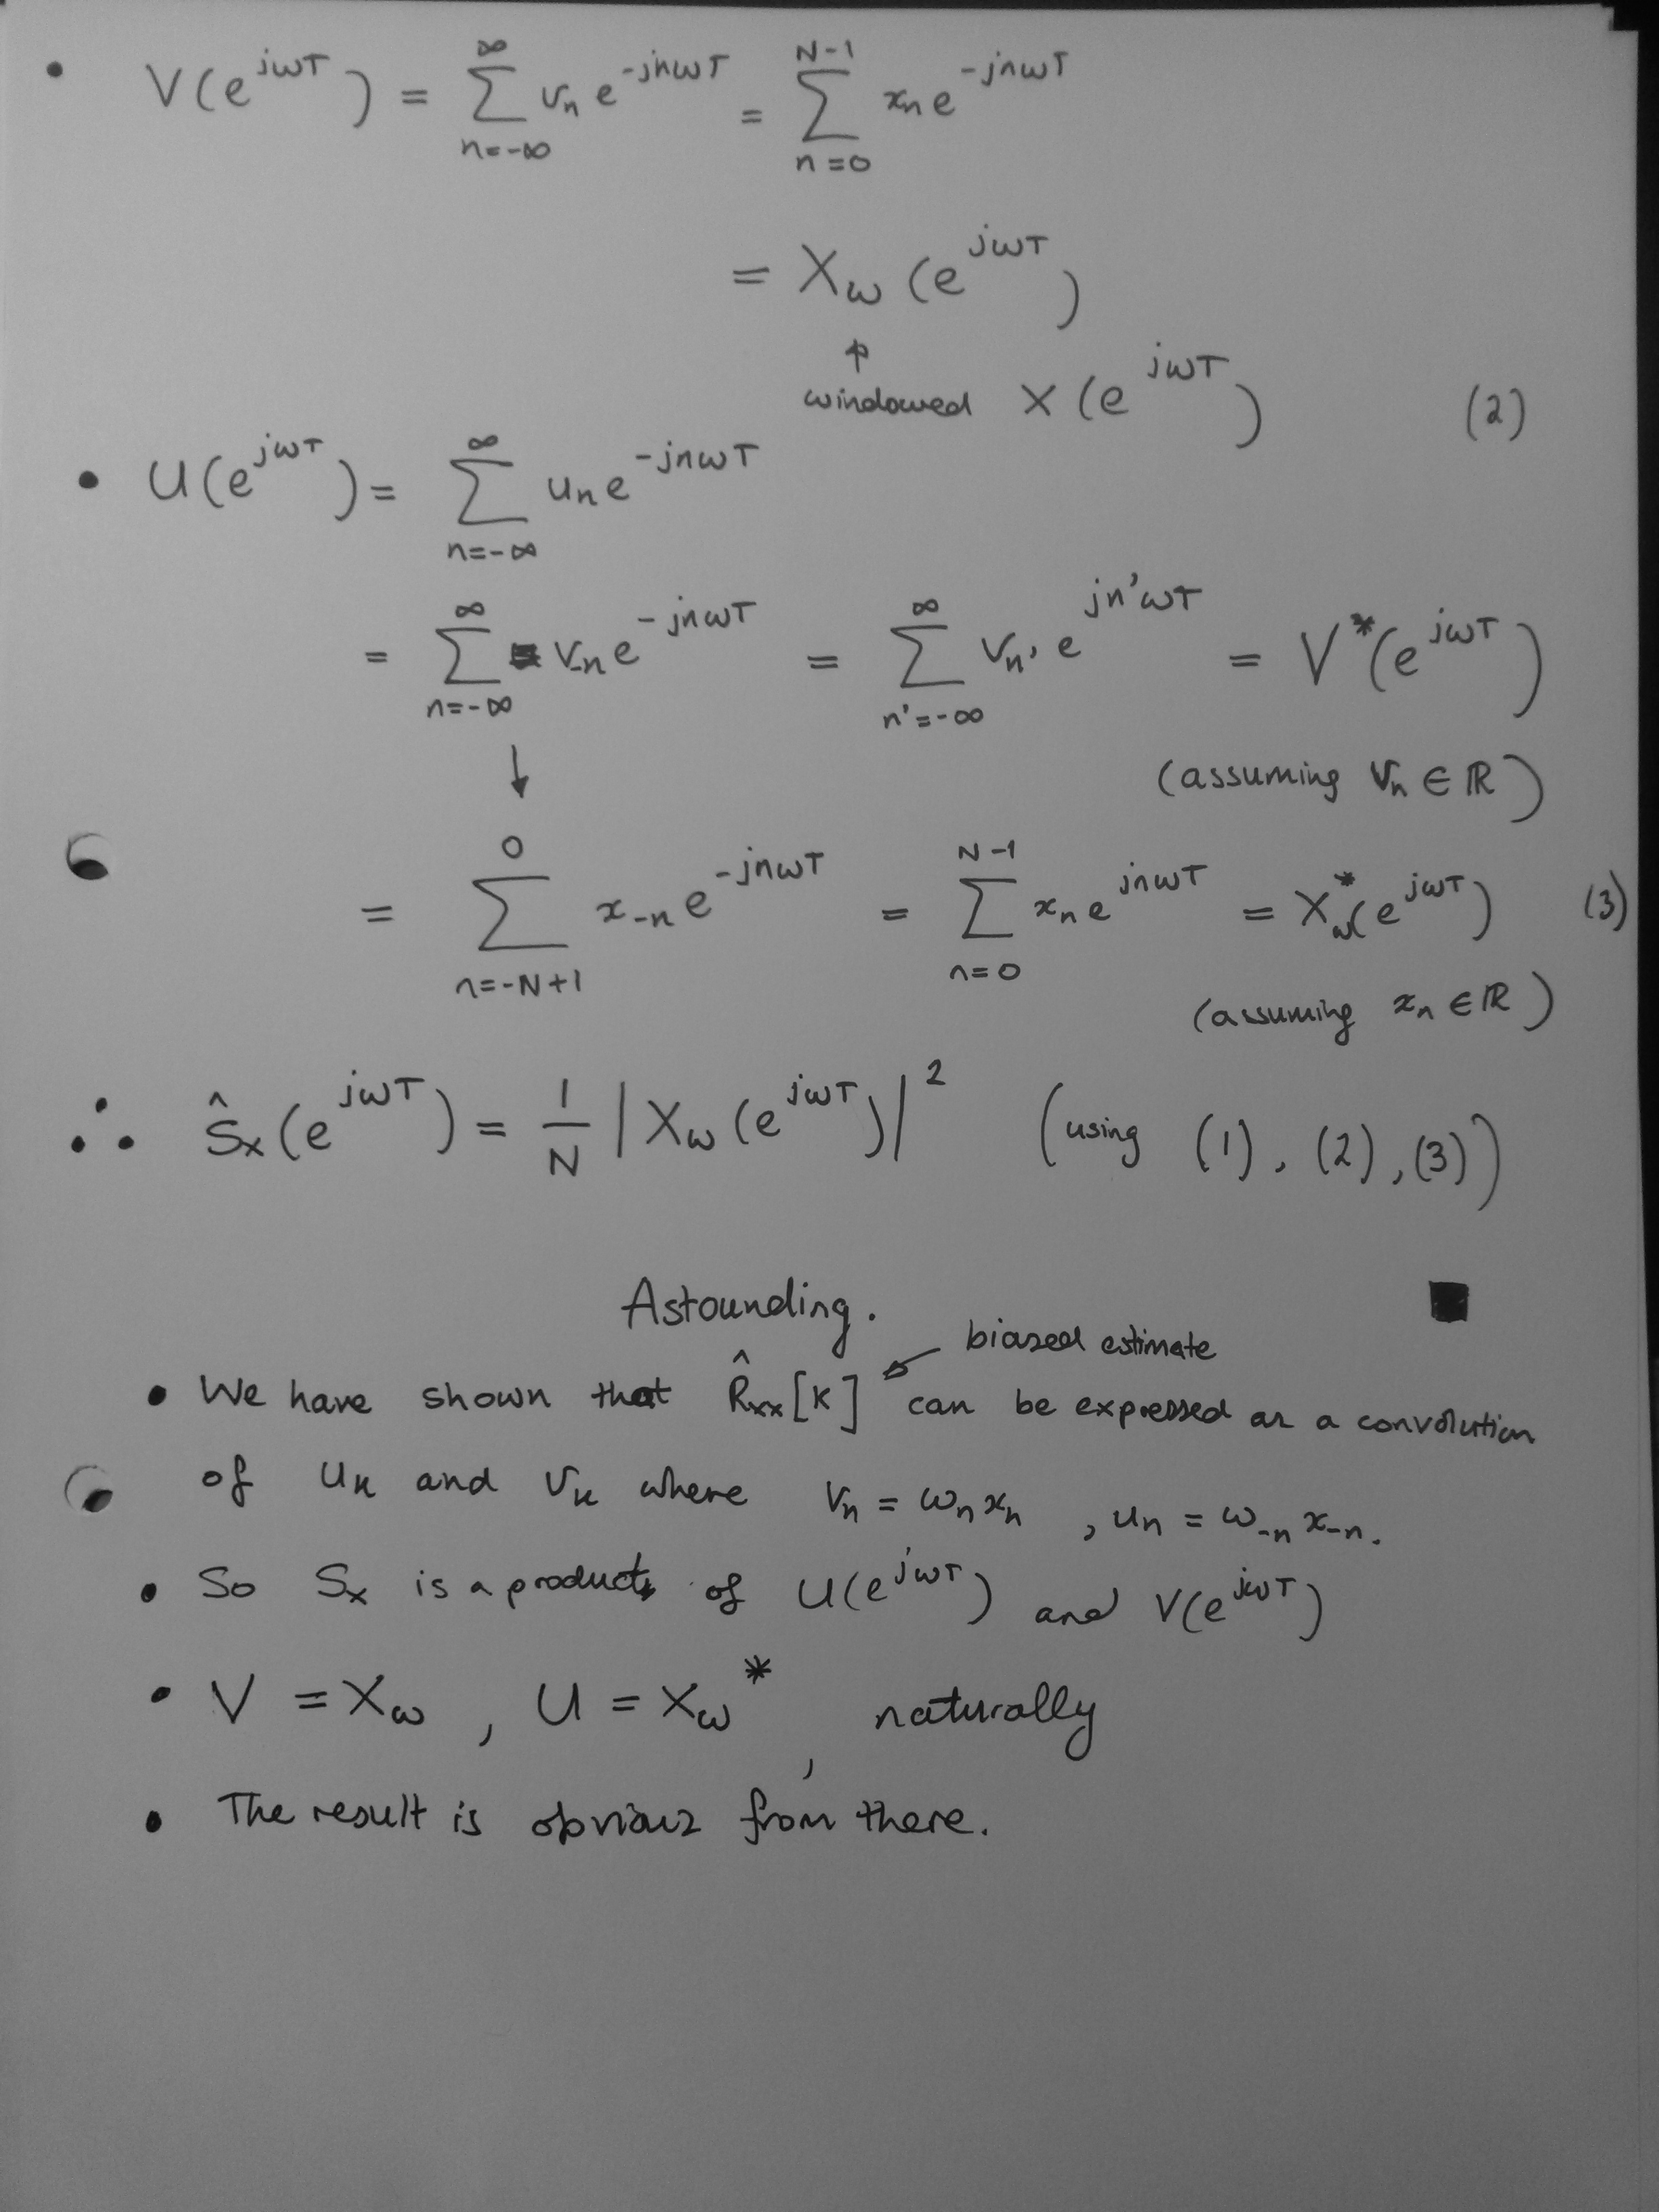 • V(e^{jωT}) = ∑_{n=-∞}^{∞} v_n e^{-jnωT} = ∑_{n=0}^{N-1} x_n e^{-jnωT}
= X_ω(e^{jωT})
↑
windowed X(e^{jωT}) (2)
• U(e^{jωT}) = ∑_{n=-∞}^{∞} u_n e^{-jnωT}
= ∑_{n=-∞}^{∞} v_{-n} e^{-jnωT} = ∑_{n'=-∞}^{∞} v_{n'} e^{jn'ωT} = V*(e^{jωT})
↓ (assuming v_n ∈ ℝ)
= ∑_{n=-N+1}^{0} x_{-n} e^{-jnωT} = ∑_{n=0}^{N-1} x_n e^{jnωT} = X_ω*(e^{jωT}) (3)
(assuming x_n ∈ ℝ)
∴ Ŝ_x(e^{jωT}) = 1/N |X_ω(e^{jωT})|² (using (1), (2), (3))
Astounding. ■
biased estimate
• We have shown that R̂_{xx}[k] can be expressed as a convolution
of u_k and v_k where v_n = ω_n x_n, u_n = ω_{-n} x_{-n}.
• So S_x is a product of U(e^{jωT}) and V(e^{jωT})
• V = X_ω, U = X_ω*, naturally
• The result is obvious from there.